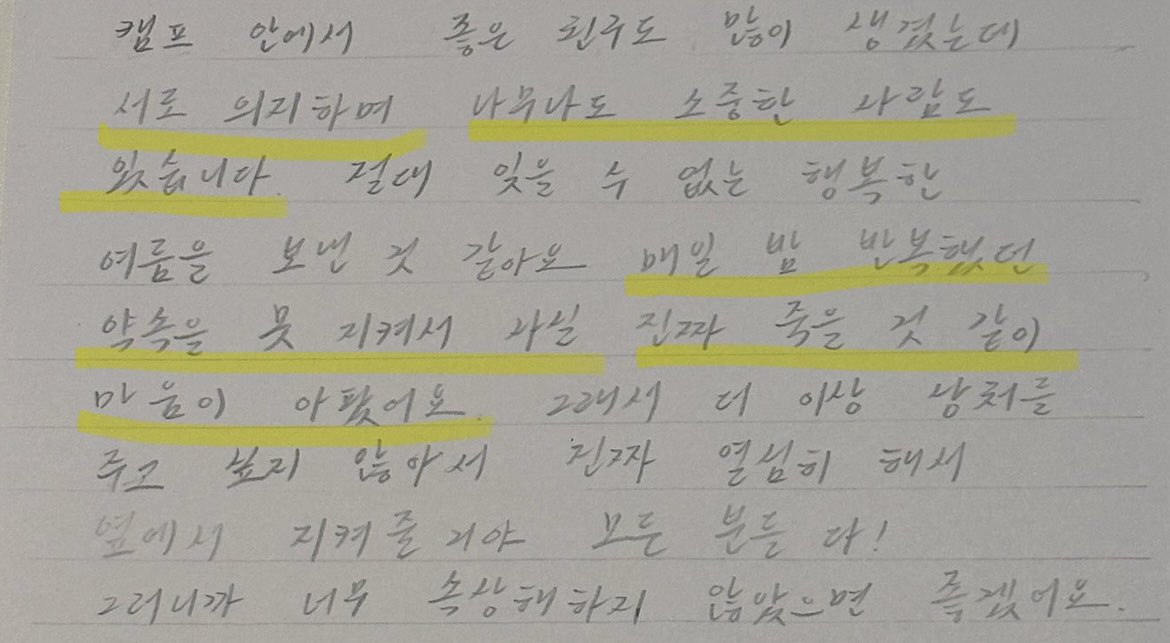 캠프 안에서 좋은 친구도 많이 생겼는데
서로 의지하며 너무나도 소중한 사람도
있습니다. 절대 잊을 수 없는 행복한
여름을 보낸 것 같아요 매일 밤 반복했던
약속을 못 지켜서 사실 진짜 죽을 것 같이
마음이 아팠어요. 그래서 더 이상 상처를
주고 싶지 않아서 진짜 열심히 해서
옆에서 지켜줄 거야 모든 분들 다!
그러니까 너무 속상해하지 않았으면 좋겠어요.